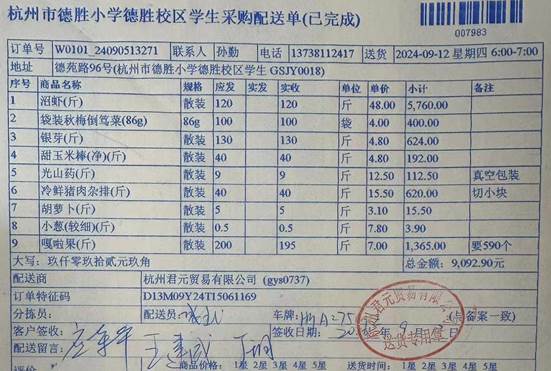 杭州市德胜小学德胜校区学生采购配送单(已完成)
007983
订单号 W0101_24090513271 联系人 孙勤 电话 13738112417 送货 2024-09-12 星期四 6:00-7:00
地址 德苑路96号(杭州市德胜小学德胜校区学生 GSJY0018)
序号 商品名称 规格 应发 实发 实收 单位 单价 小计 备注
1 沼虾(斤) 散装 120 120 斤 48.00 5,760.00
2 袋装秋梅倒笃菜(86g) 86g 100 100 袋 4.00 400.00
3 银芽(斤) 散装 130 130 斤 4.80 624.00
4 甜玉米棒(净)(斤) 散装 40 40 斤 4.80 192.00
5 光山药(斤) 散装 9 9 斤 12.50 112.50 真空包装
6 冷鲜猪肉杂排(斤) 散装 40 40 斤 15.50 620.00 切小块
7 胡萝卜(斤) 散装 5 5 斤 3.10 15.50
8 小葱(较细)(斤) 散装 0.5 0.5 斤 7.80 3.90
9 嘎啦果(斤) 散装 200 195 斤 7.00 1,365.00 要590个
大写: 玖仟零玖拾贰元玖角 总金额: 9,092.90元
配送商 杭州君元贸易有限公司 (gys0737)
订单特征码 D13M09Y24T15061169
分拣员: 配送员: 车牌: 备案一致)
客户签收: 签收日期:
配送留言:
君元贸易有限 送货专用章
评价 商品价格: 1星 2星 3星 4星 5星 送货时间: 1星 2星 3星 4星 5星